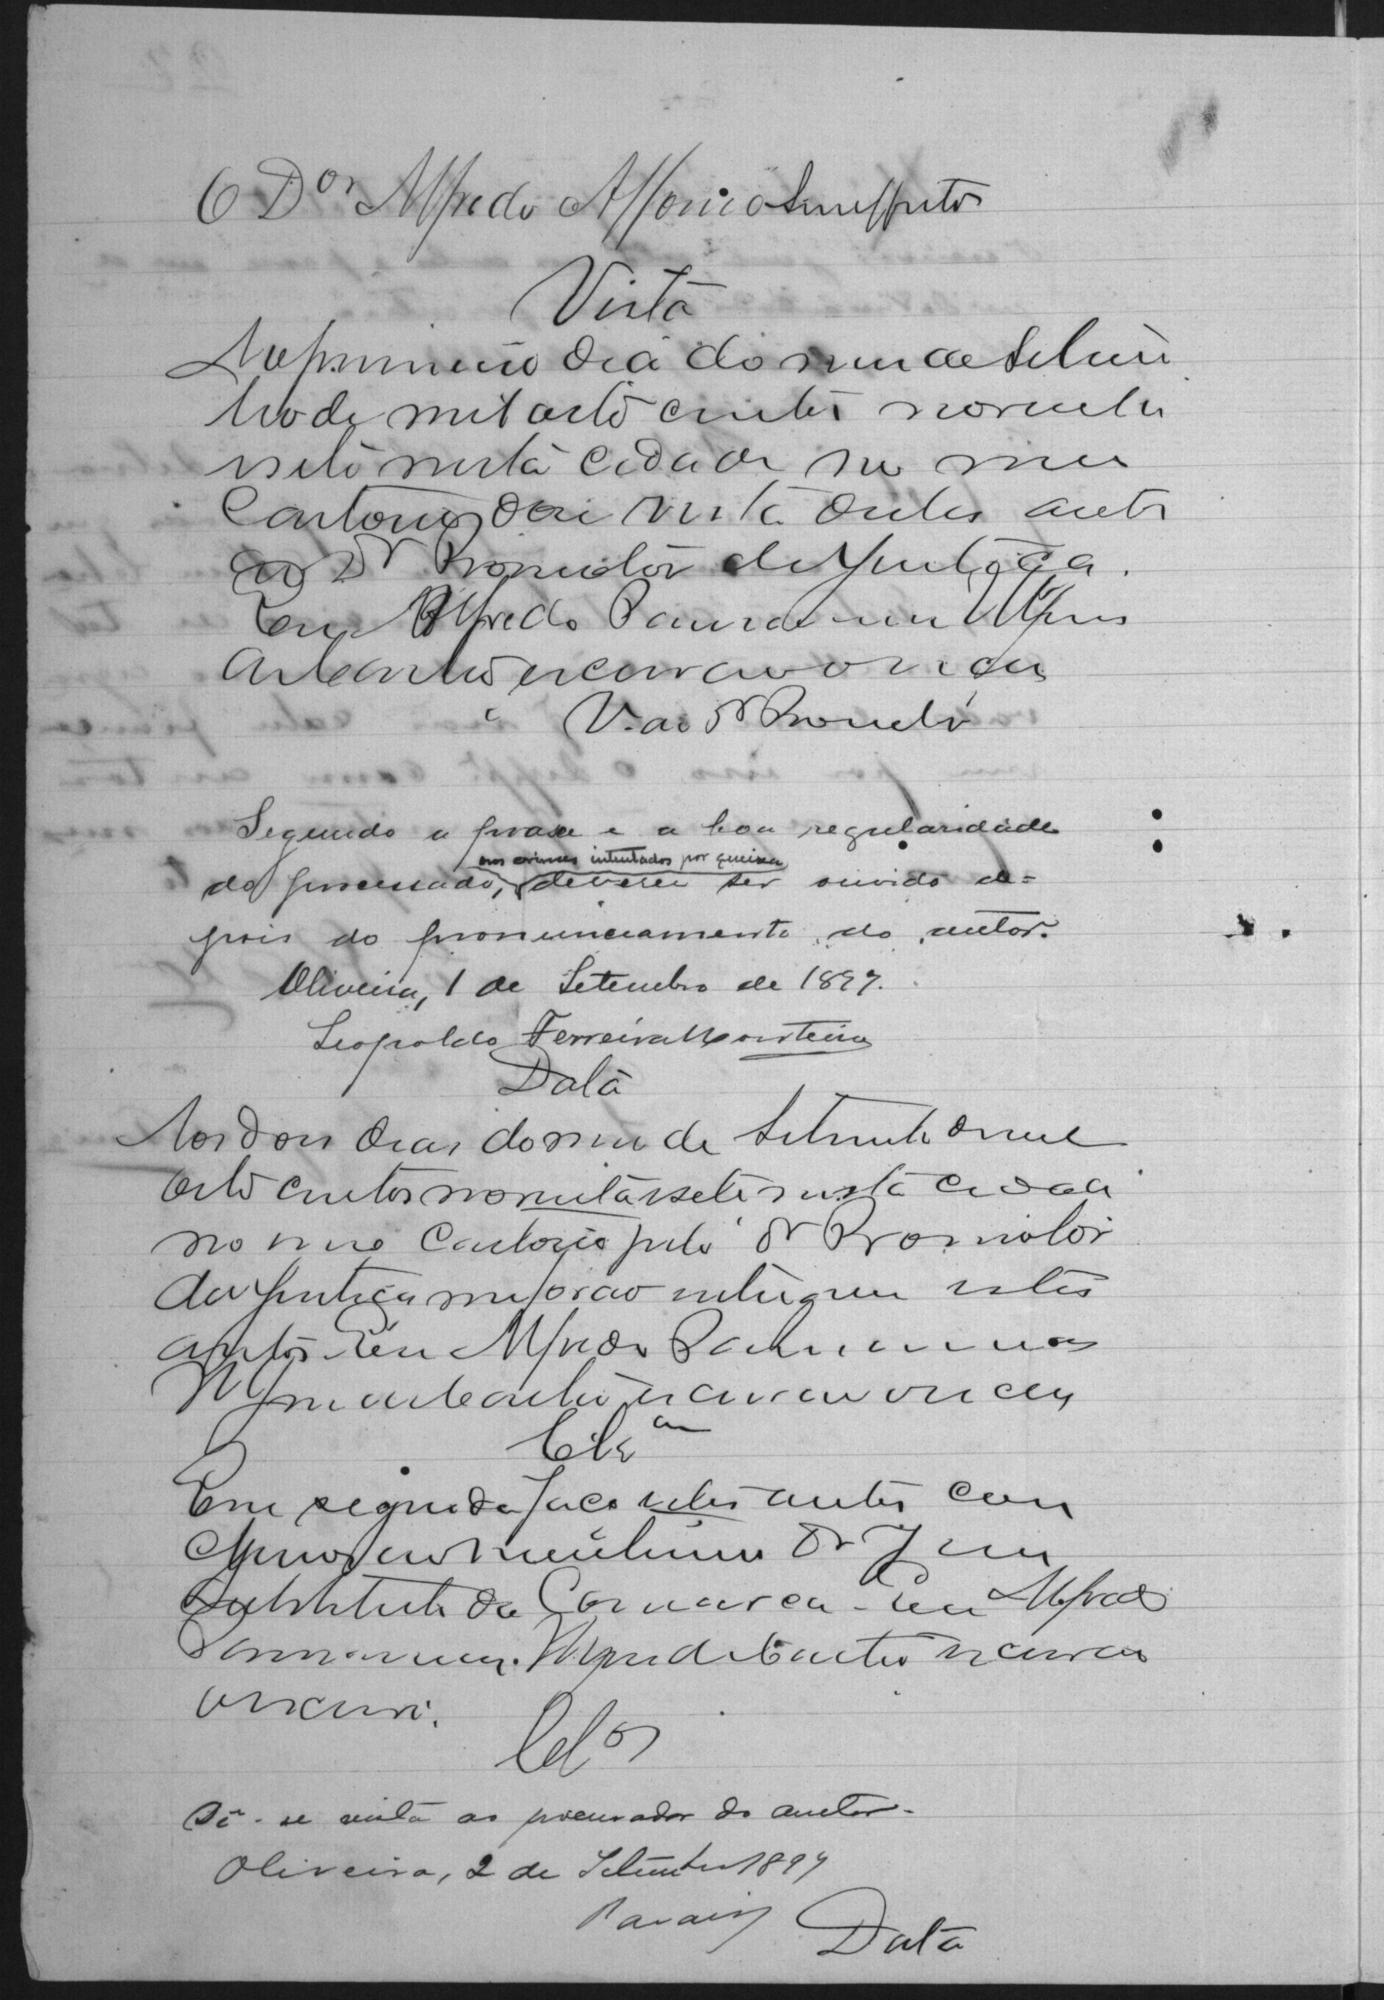 O Dor Alfredo Affonso
Vista
Ao primeiro dia do mes de Setem
bro de mil oito centos noventa
esete nesta cidade no meu
Cartorio dou vista destes autos
ao Dr Promotor de Justiça.
Eu Alfredo
escrivão o
V. ao Dr Promotor
Segundo a praxe e a boa regularidade
nos crimes intentados por queixa
do processado, deverei ser ouvido de=
pois do pronunciamento do autor.
Oliveira, 1 de Setembro de 1897.
Leopoldo Ferreira Monteiro
Data
Aos dois dias do mes de Setembro de mil
oito centos noventa esete nesta cidade
no meu Cartorio pelo Dr Promotor
da Justiça me forão entregues estes
autos Eu Alfredo
Clsão
Em seguida faço estes autos con
clusos ao Dr Juiz
Substituto da Comarca. Eu Alfredo
escrivão
oescrevi.
Clos
Dê-se vista ao procurador do auctor.
Oliveira, 2 de Setembro 1897
Data